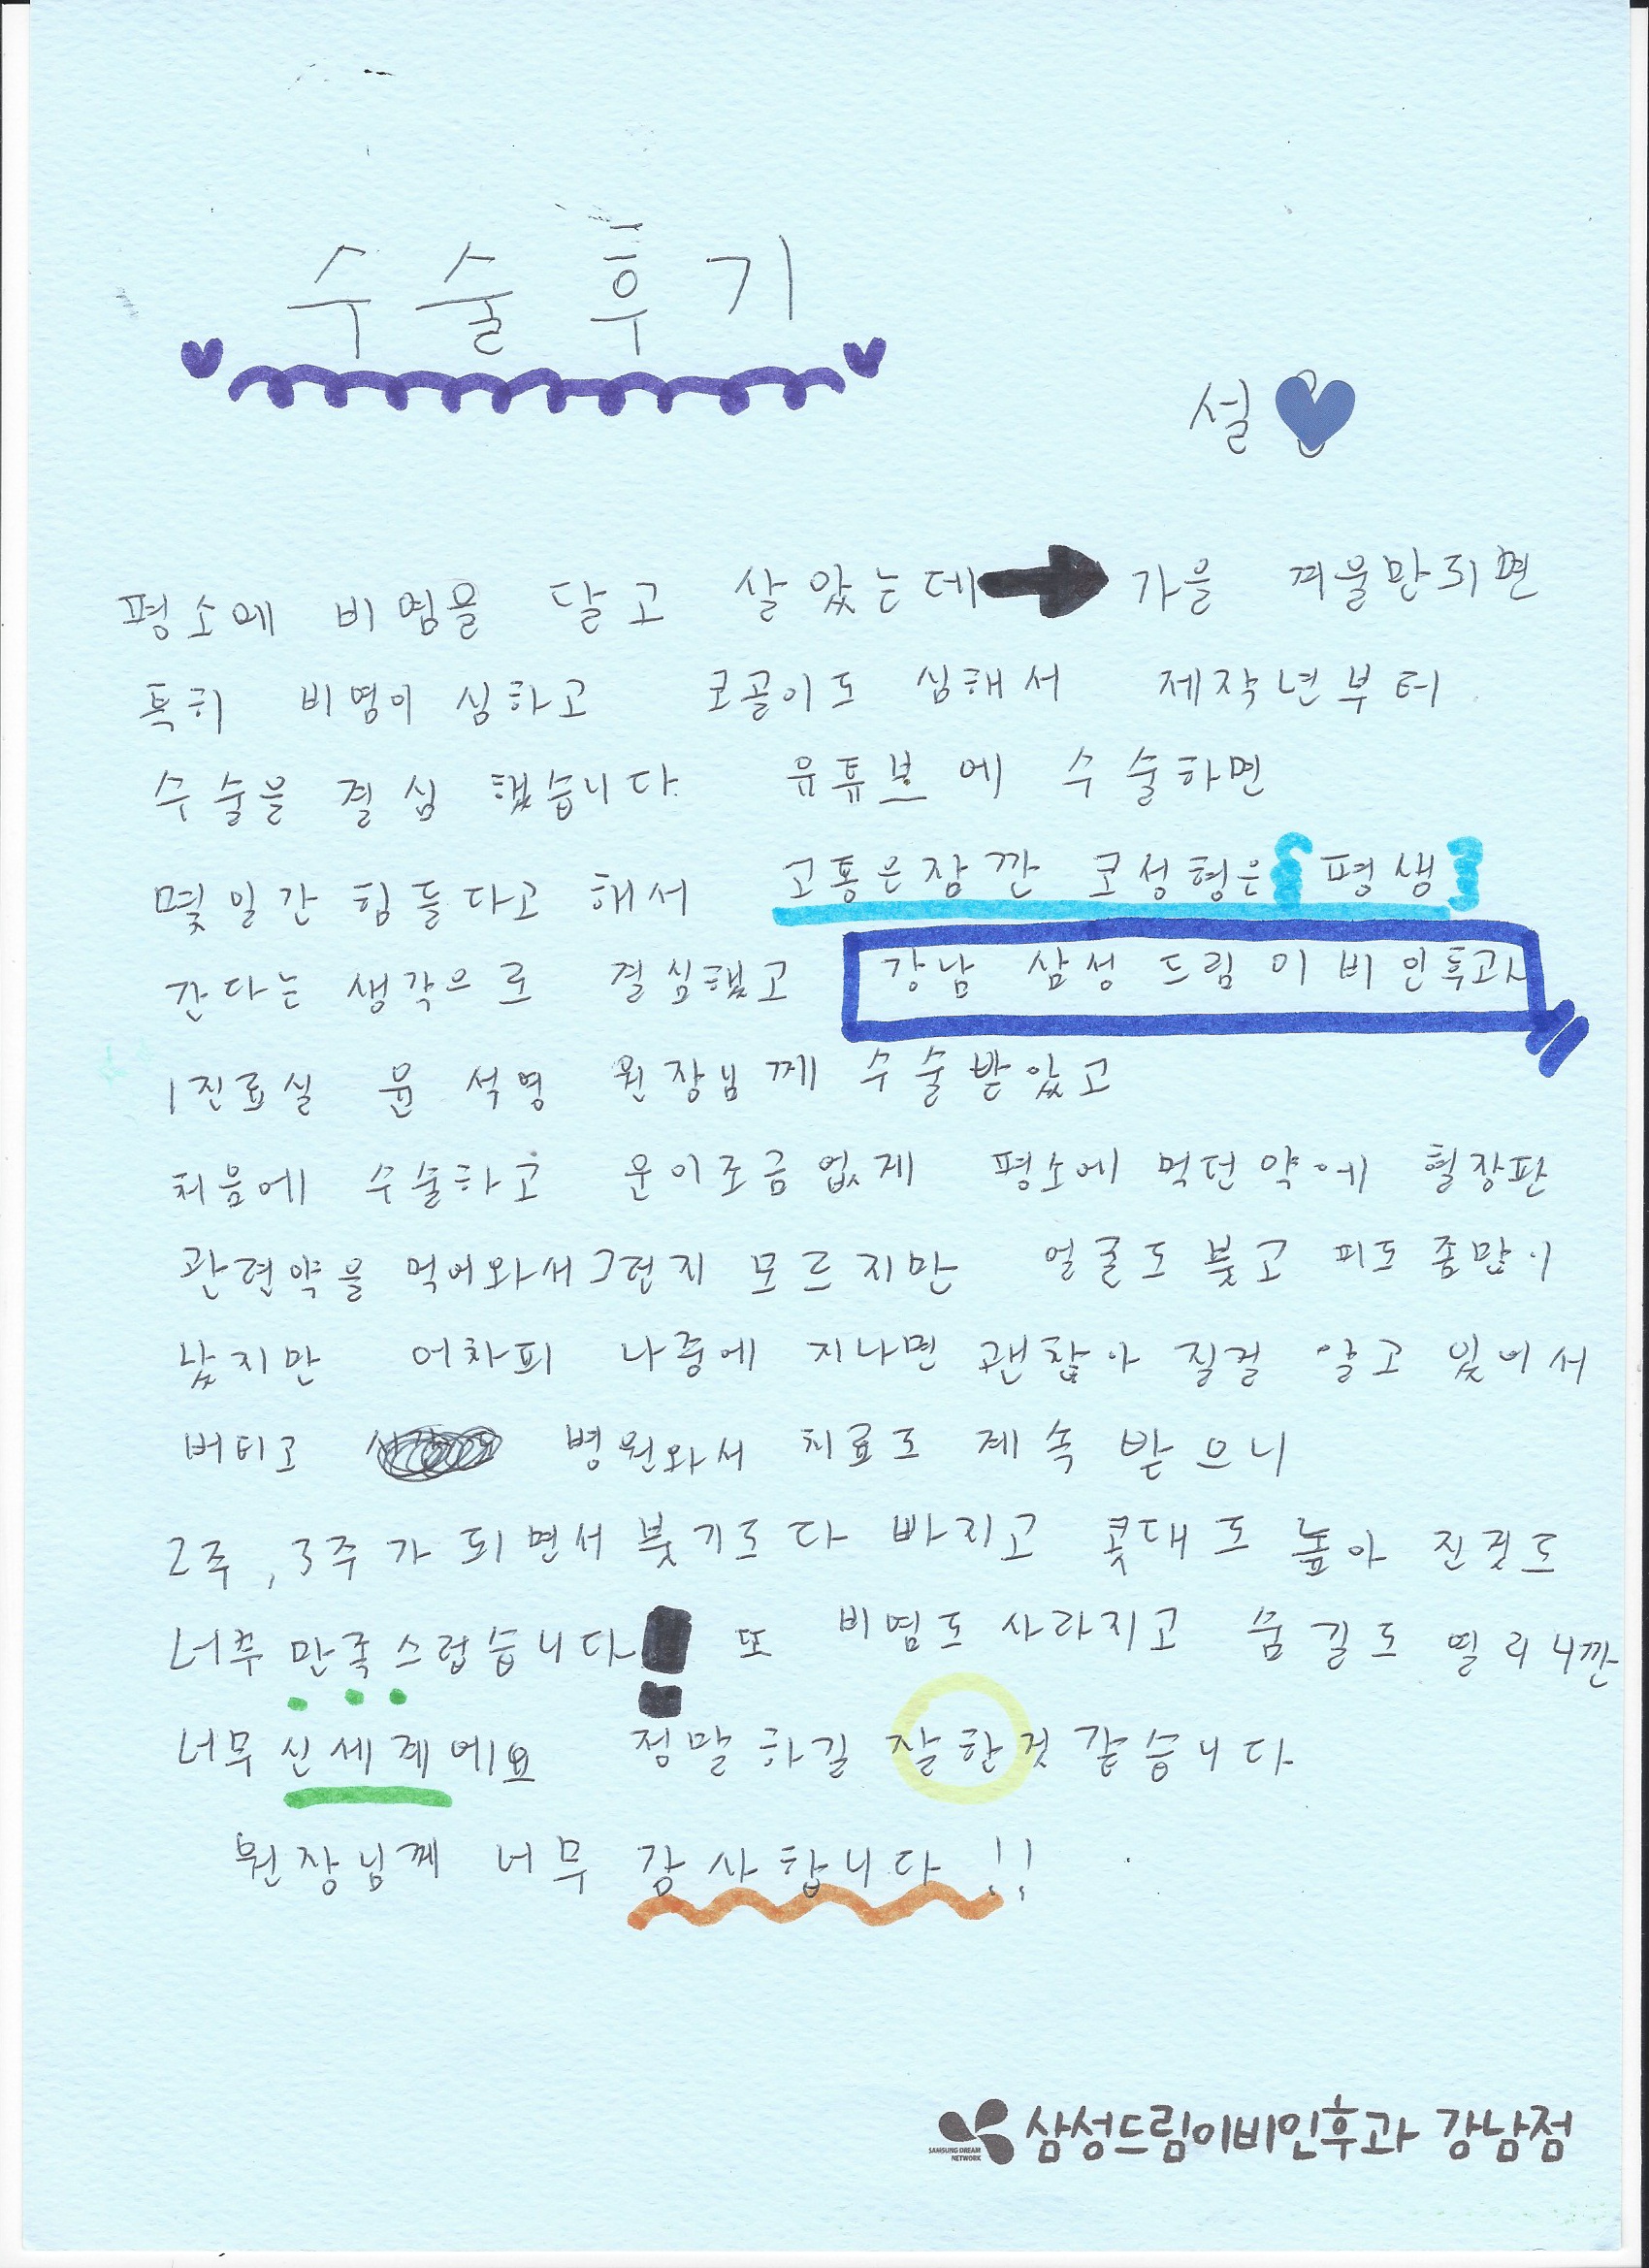 수술후기
설
평소에 비염을 달고 살았는데 가을 겨울만되면
특히 비염이 심하고 코골이도 심해서 제작년부터
수술을 결심 했습니다 유튜브에 수술하면
몇일간 힘들다고 해서 고통은잠깐 코성형은 평생
간다는 생각으로 결심했고 강남 삼성드림이비인후과
1진료실 윤석명 원장님께 수술받았고
처음에 수술하고 운이조금없게 평소에 먹던약에 혈장판
관련약을 먹어와서그런지 모르지만 얼굴도 붓고 피도 좀많이
났지만 어차피 나중에 지나면 괜찮아 질걸 알고 있어서
버티고 병원와서 치료도 계속 받으니
2주, 3주가 되면서 붓기도다 빠지고 콧대도 높아 진것도
너무 만족스럽습니다! 또 비염도 사라지고 숨길도 열리니깐
너무신세계에요 정말하길 잘한것 같습니다
원장님께 너무 감사합니다!!
SAMSUNG DREAM NETWORK 삼성드림이비인후과 강남점